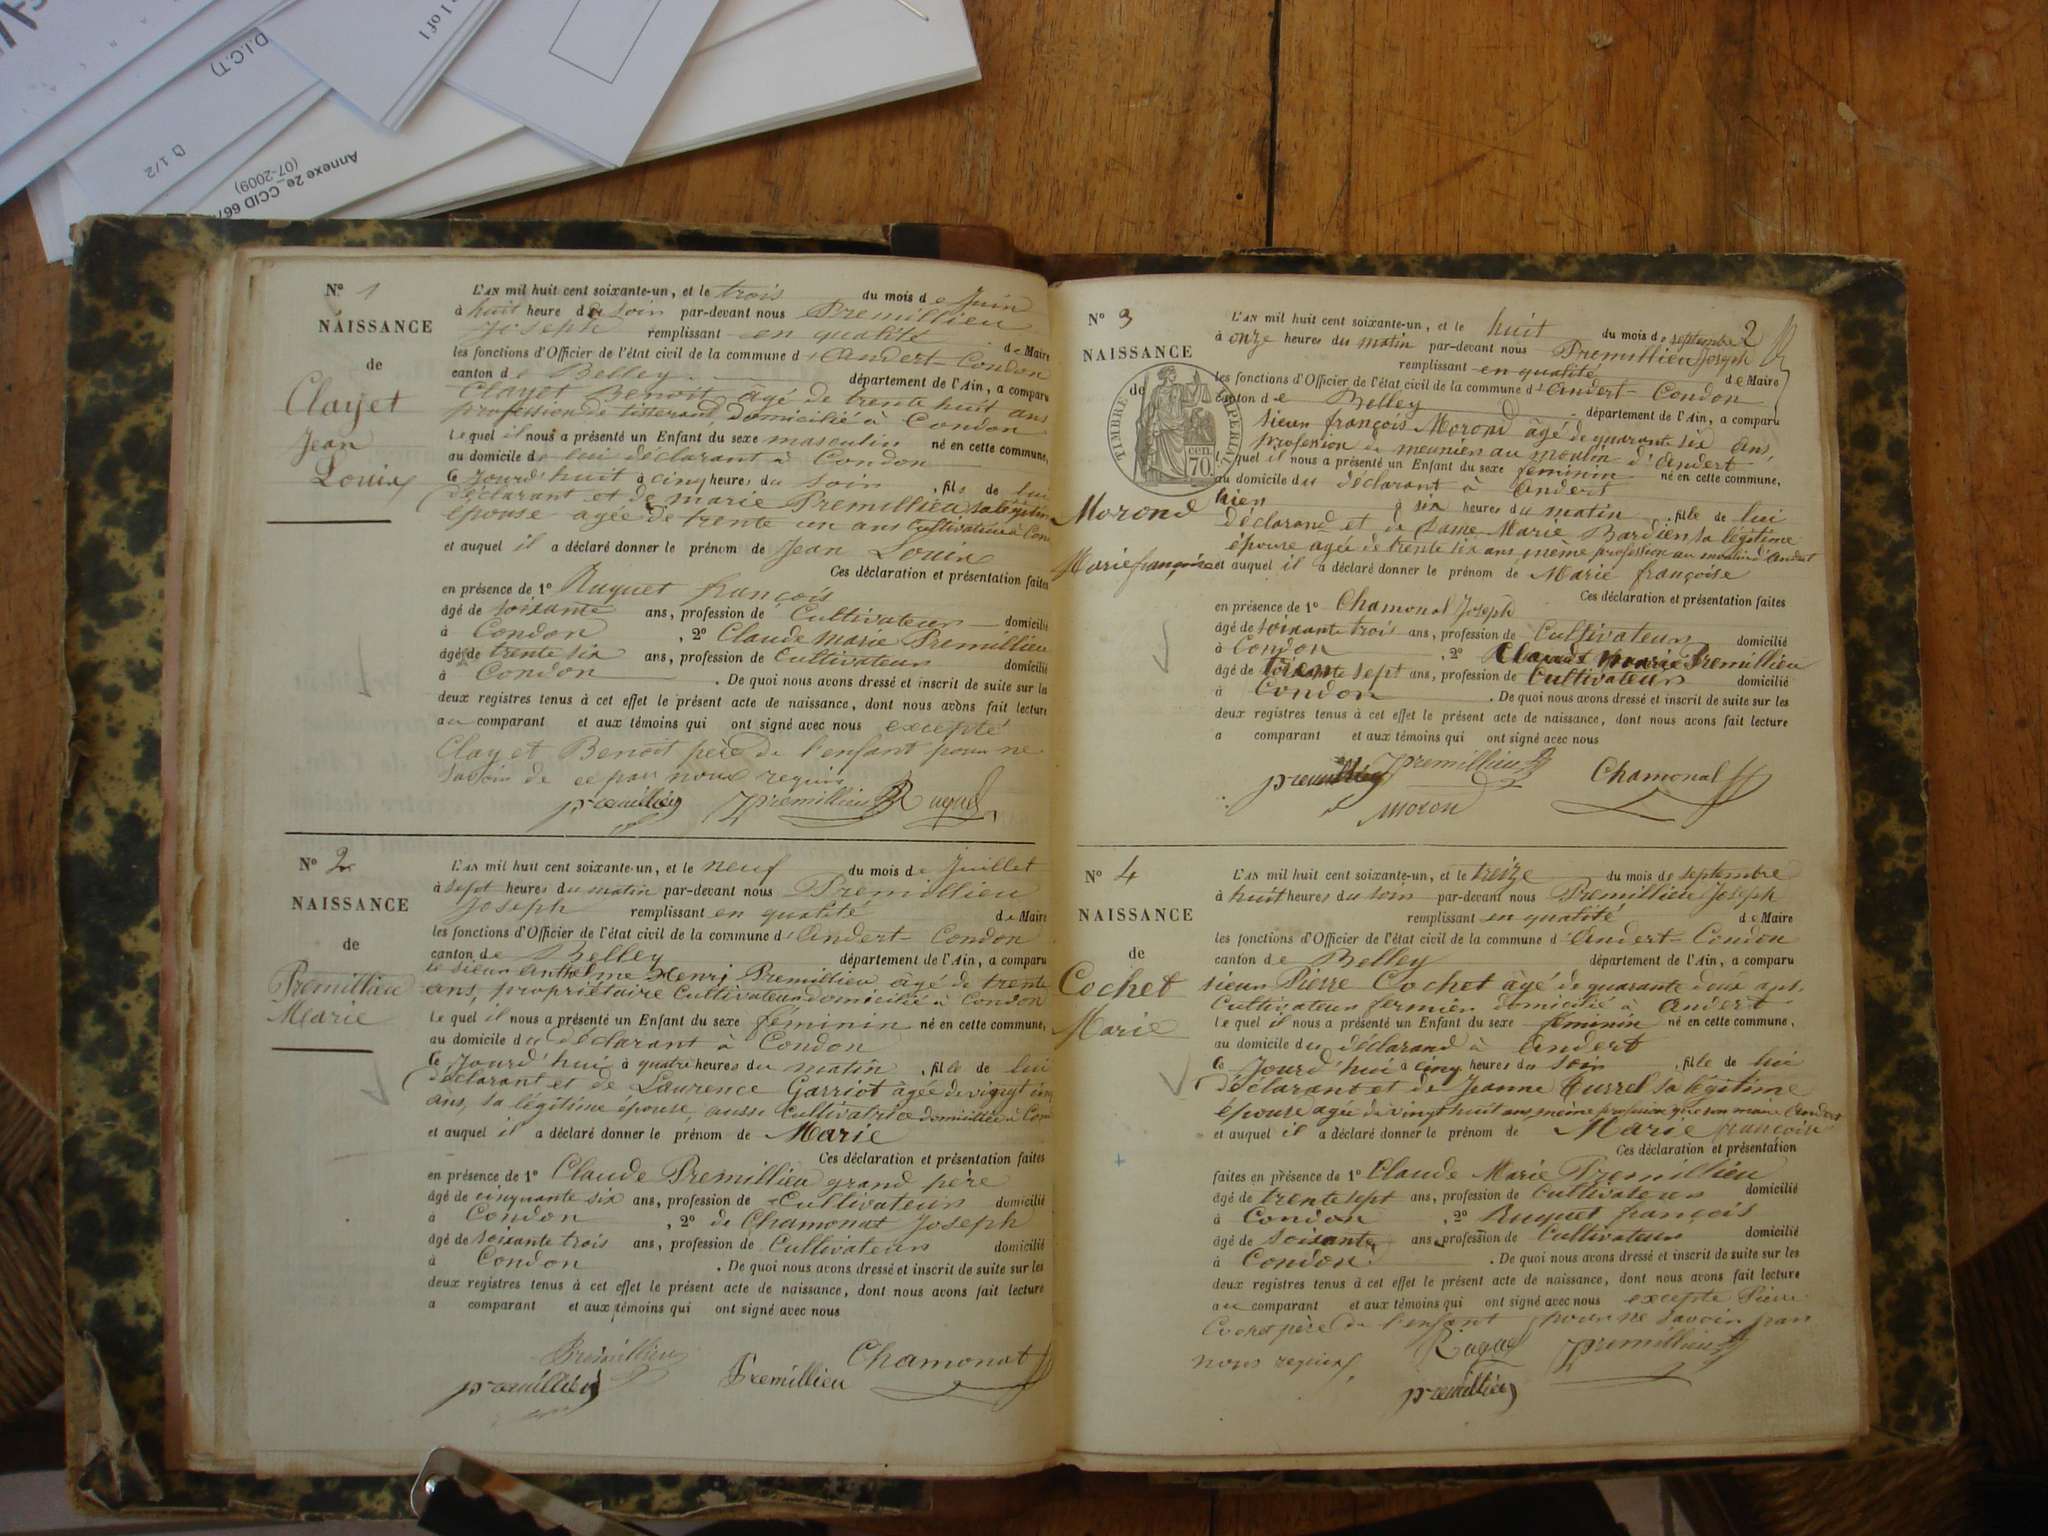 1 of 1
D.I.C.T)
D 1/2
Annexe 2e_CCID 667
(07-2009)
N° 1
NAISSANCE
de
Clayet
Jean
Louis
L'AN mil huit cent soixante-un, et le trois du mois de Juin
à huit heure du soir par-devant nous Premillieu
Joseph remplissant en qualité de Maire
les fonctions d'Officier de l'état civil de la commune d'Andert-Condon
canton de Belley département de l'Ain, a comparu
Clayet Benoit âgé de trente huit ans
profession de tisserand, domicilié à Condon
Lequel il nous a présenté un Enfant du sexe masculin né en cette commune,
au domicile de lui déclarant à Condon
Ce Jourd'huit à cinq heures du soir, fils de lui
déclarant et de marie Premillieu sa légitim
épouse agée de trente un ans Cultivateur à Con
et auquel il a déclaré donner le prénom de Jean Louis
Ces déclaration et présentation faites
en présence de 1° Ruquet françois
âgé de soixante ans, profession de Cultivateur domicilié
à Condon, 2° Claude Marie Premillieu
âgé de trente six ans, profession de Cultivateur domicilié
à Condon. De quoi nous avons dressé et inscrit de suite sur les
deux registres tenus à cet effet le présent acte de naissance, dont nous avons fait lecture
au comparant et aux témoins qui ont signé avec nous excepté
Clayet Benoit père de l'enfant pour ne
savoir de ce par nous requis
premillieu Premillieu Ruquet
N° 2
NAISSANCE
de
Prémillieu
Marie
L'AN mil huit cent soixante-un, et le neuf du mois de Juillet
à sept heures du matin par-devant nous Premillieu
Joseph remplissant en qualité de Maire
les fonctions d'Officier de l'état civil de la commune d'Andert-Condon
canton de Belley département de l'Ain, a comparu
le sieur Anthelme Henri Premillieu âgé de trente
ans, propriétaire Cultivateur domicilié à Condon
Lequel il nous a présenté un Enfant du sexe féminin né en cette commune,
au domicile du déclarant à Condon
Ce Jourd'hui à quatre heures du matin, fille de lui
déclarant et de Laurence Garriot âgée de vingt cinq
ans, sa légitime épouse, aussi Cultivatrice domiciliée à Con
et auquel il a déclaré donner le prénom de Marie
Ces déclaration et présentation faites
en présence de 1° Claude Premillieu grand père
âgé de cinquante six ans, profession de Cultivateur domicilié
à Condon, 2° de Chamonat Joseph
âgé de soixante trois ans, profession de Cultivateur domicilié
à Condon. De quoi nous avons dressé et inscrit de suite sur les
deux registres tenus à cet effet le présent acte de naissance, dont nous avons fait lecture
a comparant et aux témoins qui ont signé avec nous
Premillieu
premillieu Premillieu Chamonat
2
N° 3
NAISSANCE
de
TIMBRE IMPÉRIAL
70 cen.
Morond
Marie françoise
L'AN mil huit cent soixante-un, et le huit du mois de septembre
à onze heures du matin par-devant nous Premillieu Joseph
remplissant en qualité de Maire
les fonctions d'Officier de l'état civil de la commune d'Andert-Condon
canton de Belley département de l'Ain, a comparu
sieur françois Morond âgé de quarante six ans,
profession de meunier au moulin d'Andert
Lequel il nous a présenté un Enfant du sexe féminin né en cette commune,
au domicile du déclarant à Andert
hier à six heures du matin, fille de lui
déclarand et de Dame Marie Bardien sa légitime
épouse agée de trente six ans, même profession au moulin d'Andert
et auquel il a déclaré donner le prénom de Marie françoise
Ces déclaration et présentation faites
en présence de 1° Chamonal Joseph
âgé de soixante trois ans, profession de Cultivateur domicilié
à Condon, 2° Claude Marie Premillieu
âgé de sept ans, profession de Cultivateur domicilié
à Condon. De quoi nous avons dressé et inscrit de suite sur les
deux registres tenus à cet effet le présent acte de naissance, dont nous avons fait lecture
a comparant et aux témoins qui ont signé avec nous
premillieu Premillieu Chamonal
Moron
N° 4
NAISSANCE
de
Cochet
Marie
L'AN mil huit cent soixante-un, et le treize du mois de septembre
à huit heures du soir par-devant nous Premillieu Joseph
remplissant en qualité de Maire
les fonctions d'Officier de l'état civil de la commune d'Andert-Condon
canton de Belley département de l'Ain, a comparu
sieur Pierre Cochet âgé de quarante deux ans,
Cultivateur fermier domicilié à Andert
Lequel il nous a présenté un Enfant du sexe féminin né en cette commune,
au domicile du déclarand à Andert
Ce Jourd'hui à cinq heures du soir, fille de lui
déclarant et de Jeanne Turrel sa légitime
épouse agée de vingt huit ans même profession que son mari à Andert
et auquel il a déclaré donner le prénom de Marie françoise
Ces déclaration et présentation
faites en présence de 1° Claude Marie Premillieu
âgé de trente sept ans, profession de Cultivateur domicilié
à Condon, 2° Ruquet françois
âgé de soixante ans, profession de Cultivateur domicilié
à Condon. De quoi nous avons dressé et inscrit de suite sur les
deux registres tenus à cet effet le présent acte de naissance, dont nous avons fait lecture
au comparant et aux témoins qui ont signé avec nous excepté Pierre
Cochet père de l'enfant pour ne savoir par
nous requis Ruquet Premillieu
premillieu